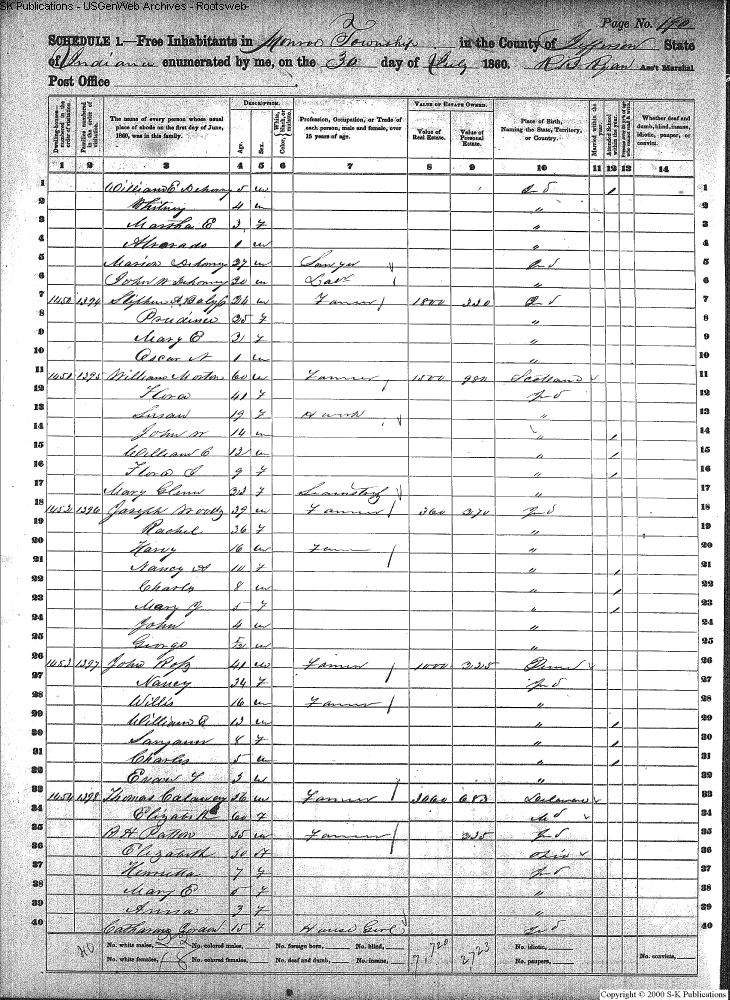 S-K Publications - USGenWeb Archives - Rootsweb
2
Page No. 190
SCHEDULE 1.—Free Inhabitants in Monroe Township in the County of Jefferson State
of Indiana enumerated by me, on the 30 day of July 1860. R B Ryan Ass't Marshal
Post Office
Dwelling-houses numbered in the order of visitation.
Families numbered in the order of visitation.
The name of every person whose usual place of abode on the first day of June, 1860, was in this family.
DESCRIPTION.
Age.
Sex.
Color, White, black, or mulatto.
Profession, Occupation, or Trade of each person, male and female, over 15 years of age.
VALUE OF ESTATE OWNED.
Value of Real Estate.
Value of Personal Estate.
Place of Birth, Naming the State, Territory, or Country.
Married within the year.
Attended School within the year.
Whether deaf and dumb, blind, insane, idiotic, pauper, or convict.
1 2 3 4 5 6 7 8 9 10 11 12 13 14
1 William E Dehoney 5 m Ind / 1
2 Whitney 4 m " 2
3 Martha E 3 f " 3
4 Alvarado 1 m " 4
5 Marion Dehoney 27 m Sawyer Ind 5
6 John W Dehoney 20 m " 6
7 1450 1394 Stephen A 24 m Farmer 1800 330 Ind 7
8 25 f " 8
9 Mary E 3 f " 9
10 Oscar N 1 m " 10
11 1451 1395 William Morton 60 m Farmer 1500 980 Scotland 11
12 Flora 41 f Ind 12
13 Susan 19 f H work " 13
14 John W 14 m " / 14
15 William C 12 m " / 15
16 Flora S 9 f " / 16
17 Mary Glenn 33 f " 17
18 1452 1396 Joseph Woods 39 m Farmer 360 370 Ind 18
19 Rachel 36 f " 19
20 Harvy 16 m Farmer " 20
21 Nancy A 10 f " / 21
22 Charls 8 m " / 22
23 Mary J 5 f " / 23
24 John 4 m " 24
25 George m " 25
26 1453 1397 John Roſs 41 m Farmer 1000 325 26
27 Nancy 34 f Ind 27
28 Willis 16 m Farmer " 28
29 William R 13 m " / 29
30 Saryann 8 f " / 30
31 Charlis 5 m " / 31
32 Evan T 3 m " 32
33 1454 1398 Thomas Calaway 56 m Farmer 3060 683 Delaware 33
34 Elizabeth 60 f Md 34
35 B H Patton 35 m Farmer 335 Ind 35
36 Elizabeth 30 f Ohio 36
37 Henrietta 7 f Ind 37
38 Mary E 5 f " 38
39 Anna 3 f " 39
40 Catharine 15 f House Girl Ind 40
40
No. white males, 22 No. colored males, No. foreign born, No. blind, 7,720 2723 No. idiotic, No. convicts,
No. white females, 18 No. colored females, No. deaf and dumb, No. insane, No. paupers,
Copyright © 2000 S-K Publications